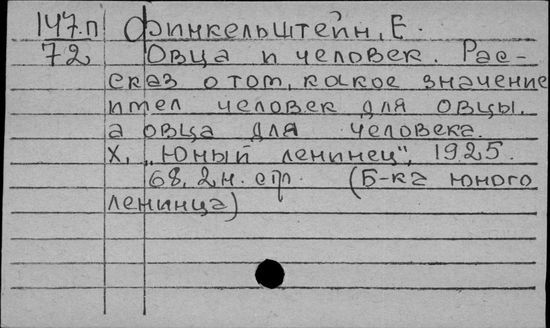 147.П Финкельштейн, Е.
72 Овца и человек. Рас-
сказ о том, какое значение
имел человек для овцы,
а овца для человека.
Х, „Юный ленинец", 1925.
68, 2н. стр. (Б-ка юного
ленинца)